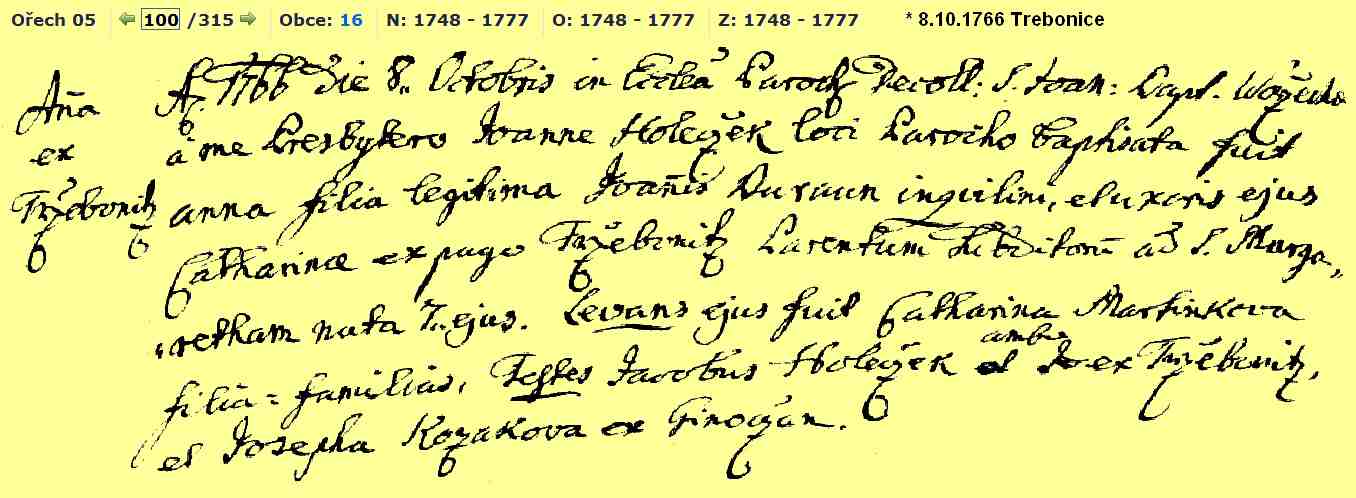 Ořech 05 100 /315 Obce: 16 N: 1748 - 1777 O: 1748 - 1777 Z: 1748 - 1777 * 8.10.1766 Trebonice
Aña
ex
Tržebonitz
A. 1766 die 8. Octobris in Eccleâ Paroch Decoll: S. Joan: Bapt.
à me Presbytero Joanne Holeczek loci Parocho baptisata fuit
anna filia legitima Joañis Duraun inquilini, et uxoris ejus
Catharinæ ex pago Tržebonitz Parentum subditorū ad S. Marga„
„retham nata 7. ejus. Levans ejus fuit Catharina Martinkova
filia = familias, Testes Jacobus Holeczek et ambo ex Tržebonitz,
et Josepha Kozakova ex Ginoczan.